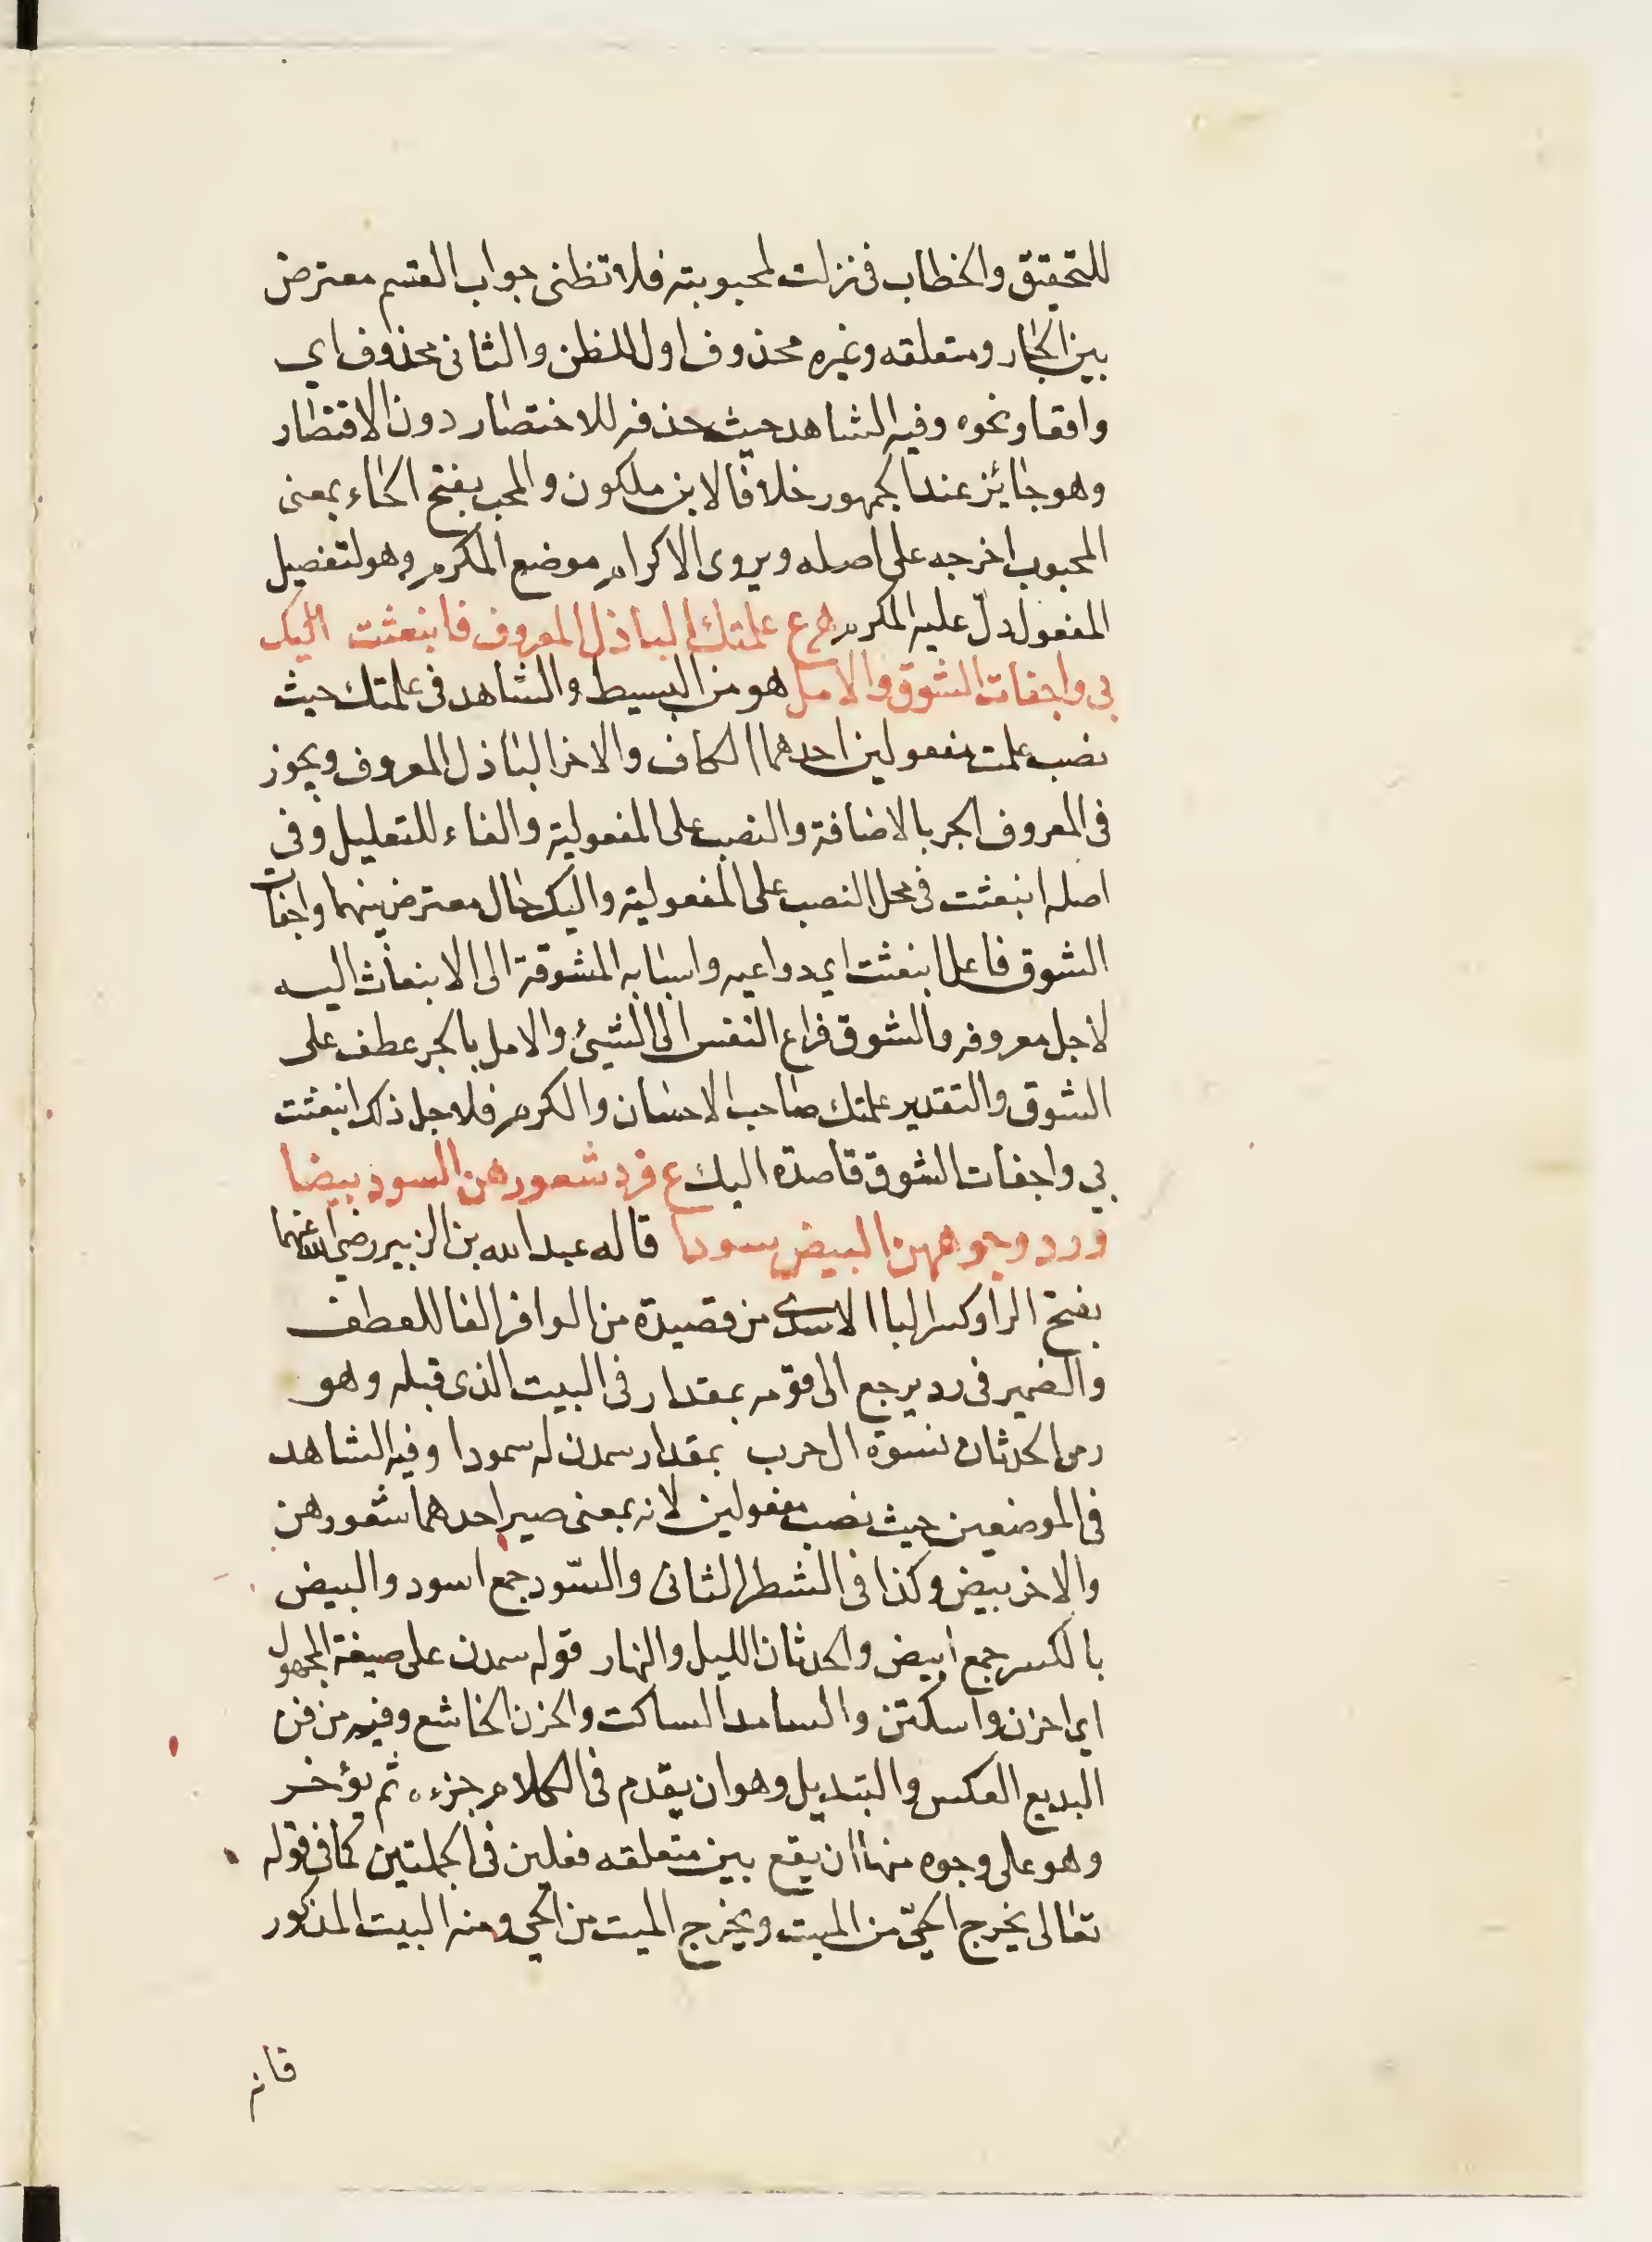 للتحقيق والخطاب فى نزلت لمحبوبته فلا تظنى جواب القسم معترض
بين الجار ومتعلقه وغيره محذوف اول للظن والثانى محذوف اي
واقعا ونحوه وفيه الشاهد حيث حذفه للاختصار دون الاقتصار
وهو جائز عند الجمهور خلافا لابن ملكون والمحب بفتح الحاء بمعنى
المحبوب اخرجه على اصله ويروى الاكرام موضع المكرم وهو لتفصيل
المفعول دلّ عليه المكرم هـ ع علمتك الباذل المعروف فانبعثت اليك
بي واجفات الشوق والامل هو من البسيط والشاهد فى علمتك حيث
نصب علمت مفعولين احدهما الكاف والاخر الباذل المعروف ويجوز
فى المعروف الجر بالاضافة والنصب على المفعولية والفاء للتعليل وفى
اصله انبعثت فى محل النصب على المفعولية واليك حال معترض بينهما واجفات
الشوق فاعل انبعثت اي دواعيه واسبابه المشوقة الى الانبعاث اليه
لاجل معروفه والشوق فراع النفس الى الشيئ والامل بالجر عطف على
الشوق والتقدير علمتك صاحب الاحسان والكرم فلاجل ذلك انبعثت
بي واجفات الشوق قاصدة اليك ع فرد شعورهن السود بيضا
ورد وجوههن البيض سودا قاله عبد الله بن الزبير رضي الله عنهما
بفتح الرا وكسر البا الاسدي من قصيدة من الوافر الفا للعطف
والضمير فى رد يرجع الى قوله بمقدار فى البيت الذى قبله وهو
رمى الحدثان نسوة ال حرب بمقدار سمدن له سمودا وفيه الشاهد
فى الموضعين حيث نصب مفعولين لانه بمعنى صير احدهما شعورهن
والاخر بيض وكذا فى الشطر الثانى والسّود جمع اسود والبيض
بالكسر جمع ابيض والحدثان الليل والنهار قوله سمدن على صيغة المجهول
اي احزن واسكتن والسامد الساكت والحزن الخاشع وفيه من فن
البديع العكس والتبديل وهو ان يقدم فى الكلام جزءه ثم يؤخر
وهو على وجوه منها ان يقع بين متعلقه فعلين فى الجملتين كما فى قوله
تعالى يخرج الحيّ من الميت ويخرج الميت من الحي ومنه البيت المذكور
فانه